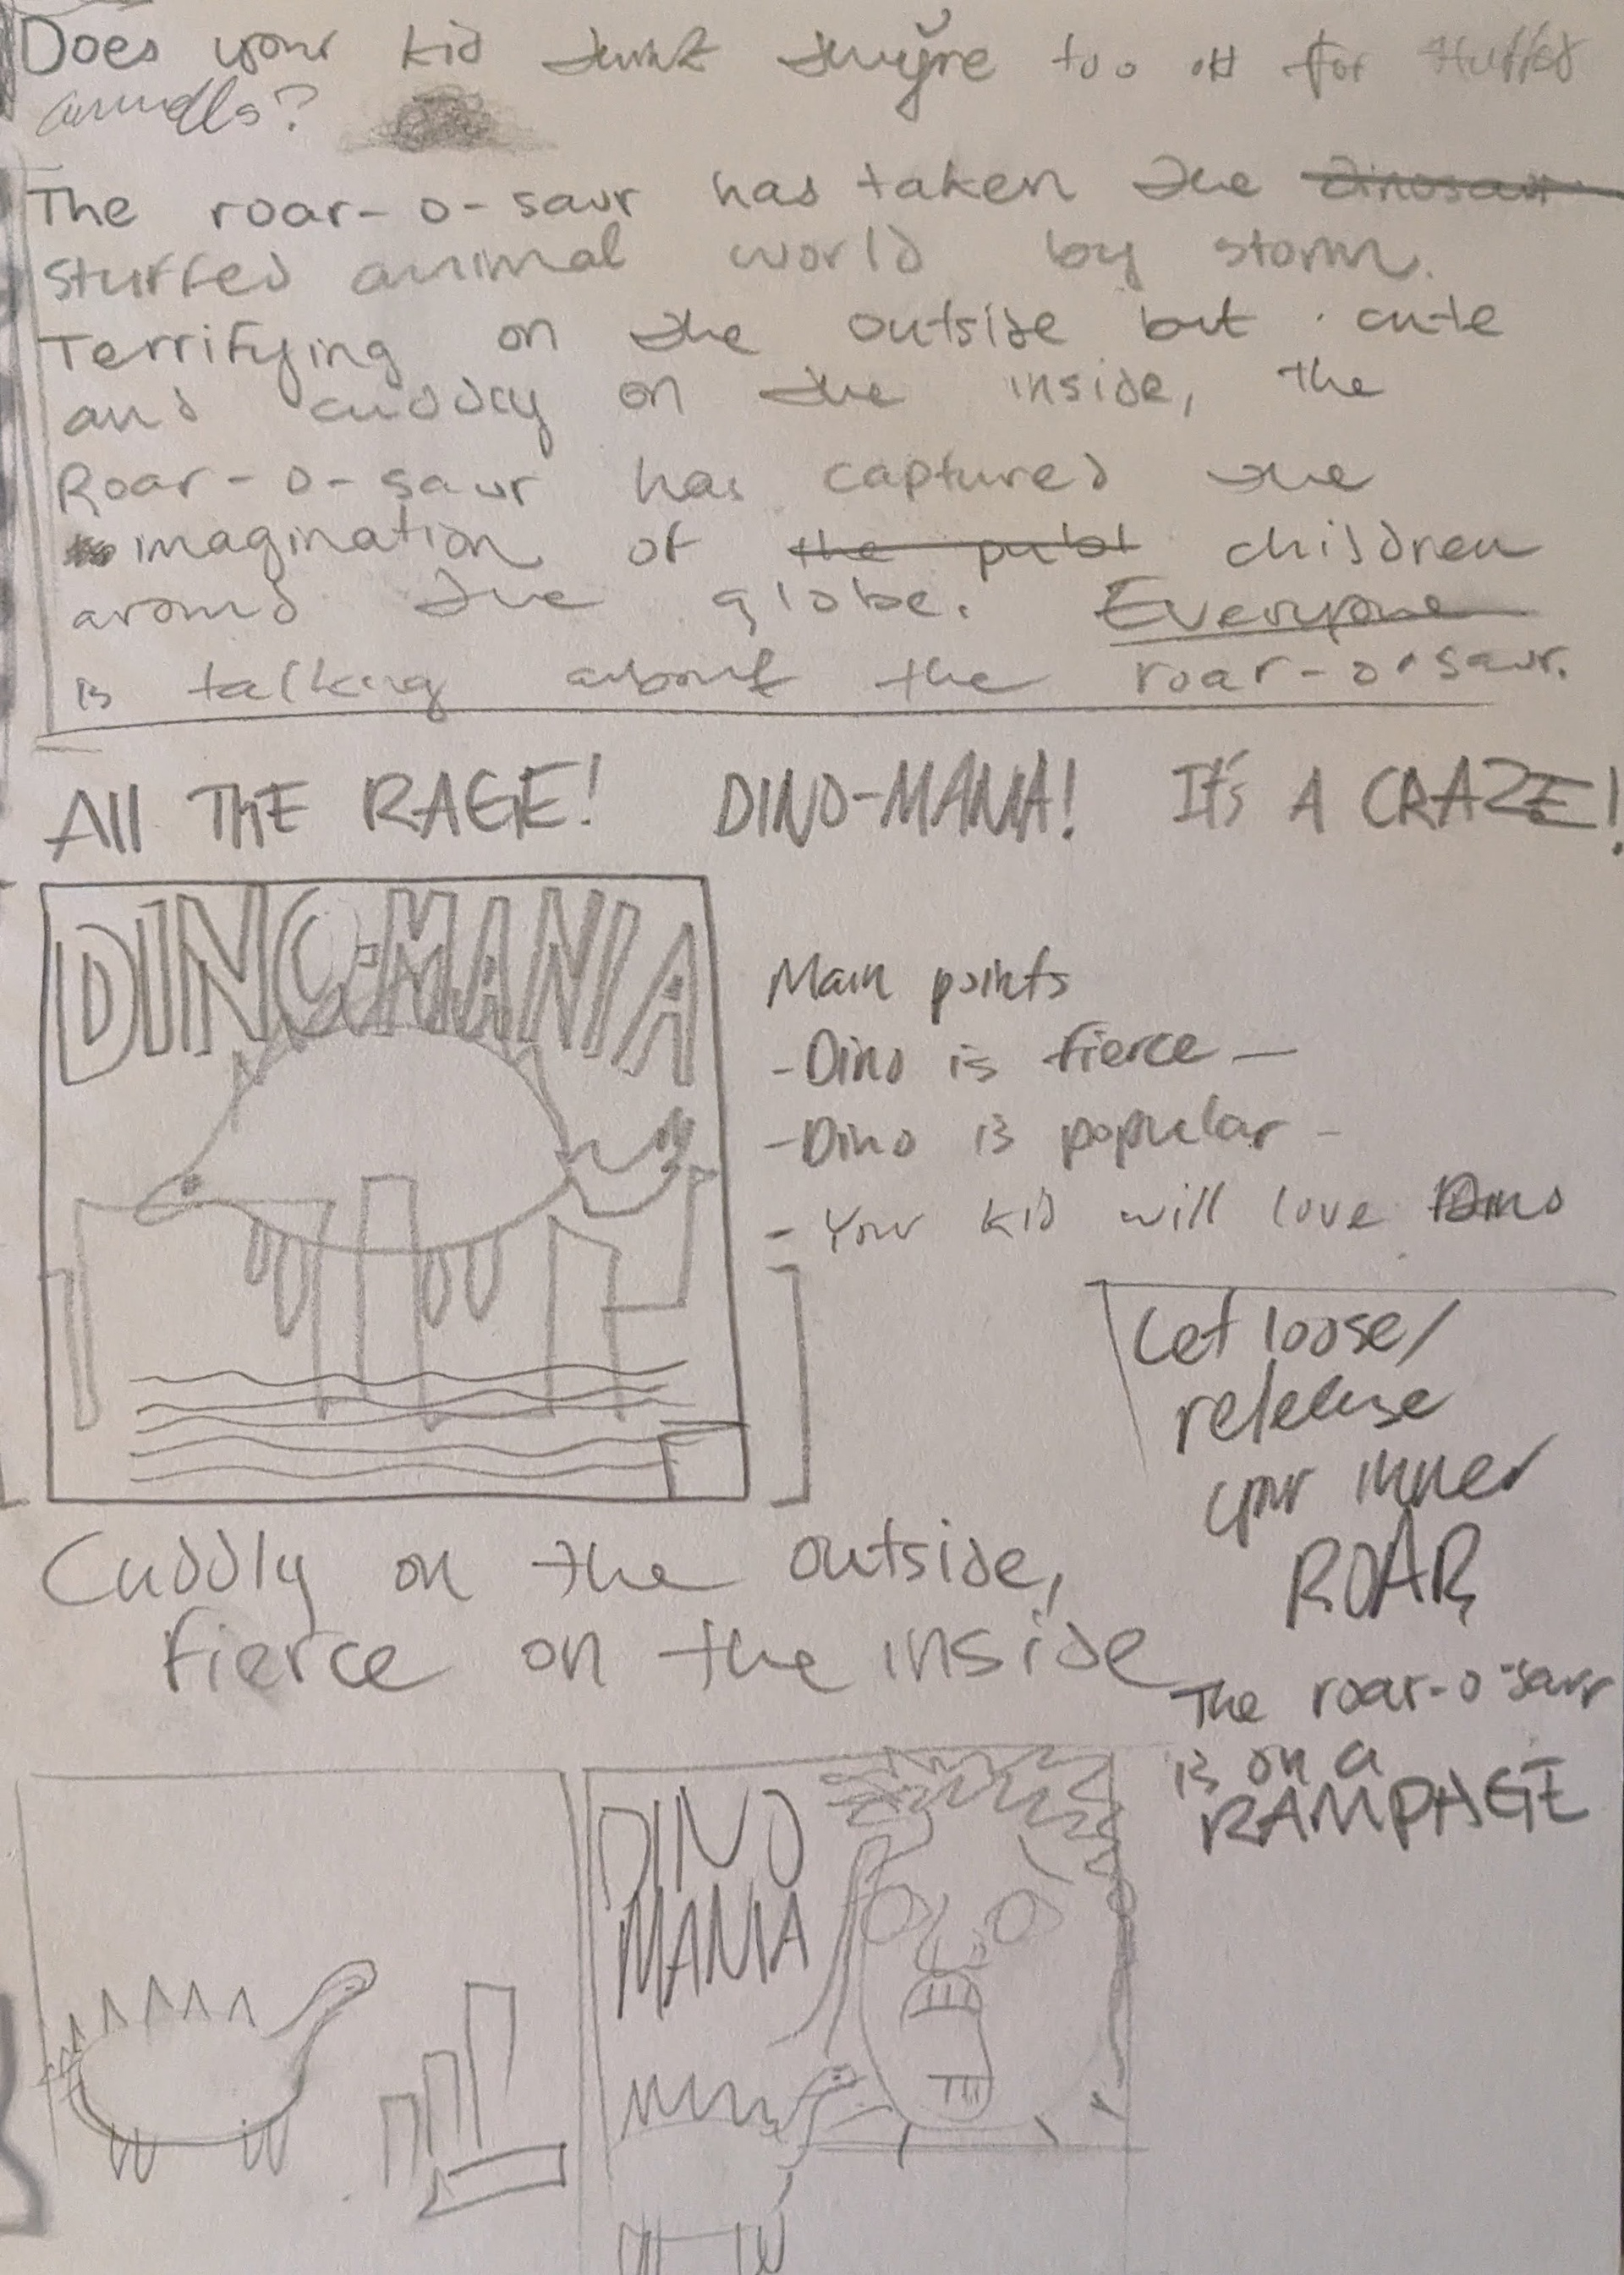 Does your kid think they're too old for stuffed
animals?
The roar-o-saur has taken the dinosaur
stuffed animal world by storm.
Terrifying on the outside but cute
and cuddly on the inside, the
Roar-o-saur has captured the
imagination of the publ children
around the globe. Everyone
is talking about the roar-o-saur.
All THE RAGE! DINO-MANIA! It's A CRAZE!
DINO-MANIA
Main points
-Dino is fierce -
-Dino is popular -
- Your kid will love Dino
Let loose/
release
your inner
ROAR
Cuddly on the outside,
fierce on the inside
The roar-o-saur
is on a
RAMPAGE
DINO
MANIA